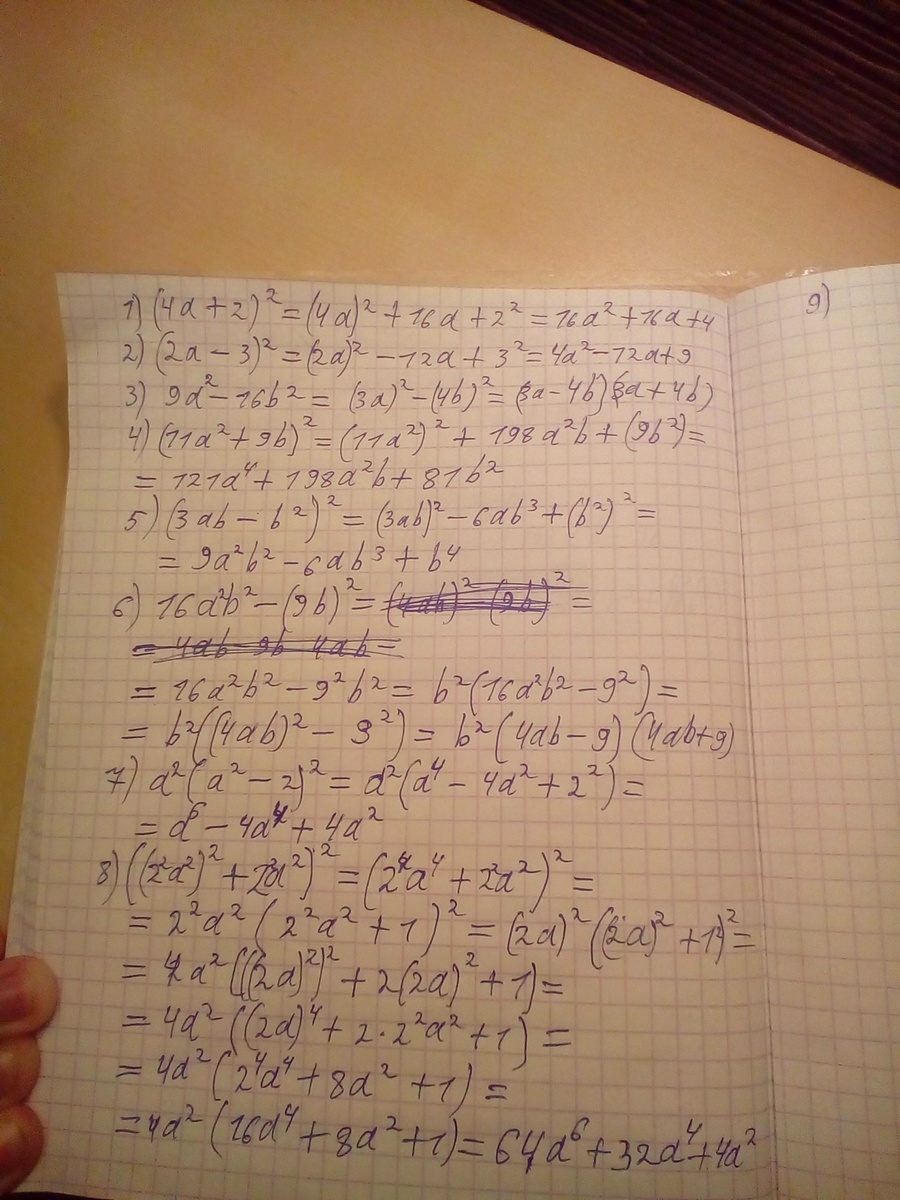 1) (4a + 2)² = (4a)² + 16a + 2² = 16a² + 16a + 4
2) (2a − 3)² = (2a)² − 12a + 3² = 4a² − 12a + 9
3) 9a² − 16b² = (3a)² − (4b)² = (3a − 4b)(3a + 4b)
4) (11a² + 9b)² = (11a²)² + 198a²b + (9b²) =
= 121a⁴ + 198a²b + 81b²
5) (3ab − b²)² = (3ab)² − 6ab³ + (b²)² =
= 9a²b² − 6ab³ + b⁴
6) 16a²b² − (9b)² = (4ab)² (9b)² =
= 4ab 9b 4ab =
= 16a²b² − 9²b² = b²(16a²b² − 9²) =
= b²((4ab)² − 9²) = b²(4ab − 9)(4ab + 9)
7) a²(a² − 2)² = a²(a⁴ − 4a² + 2²) =
= a⁶ − 4a⁴ + 4a²
8) ((2²a²)² + 2²a²)² = (2⁴a⁴ + 2²a²)² =
= 2²a²(2²a² + 1)² = (2a)²((2a)² + 1)² =
= 4a²(((2a)²)² + 2(2a)² + 1) =
= 4a²((2a)⁴ + 2·2²a² + 1) =
= 4a²(2⁴a⁴ + 8a² + 1) =
= 4a²(16a⁴ + 8a² + 1) = 64a⁶ + 32a⁴ + 4a²
9)